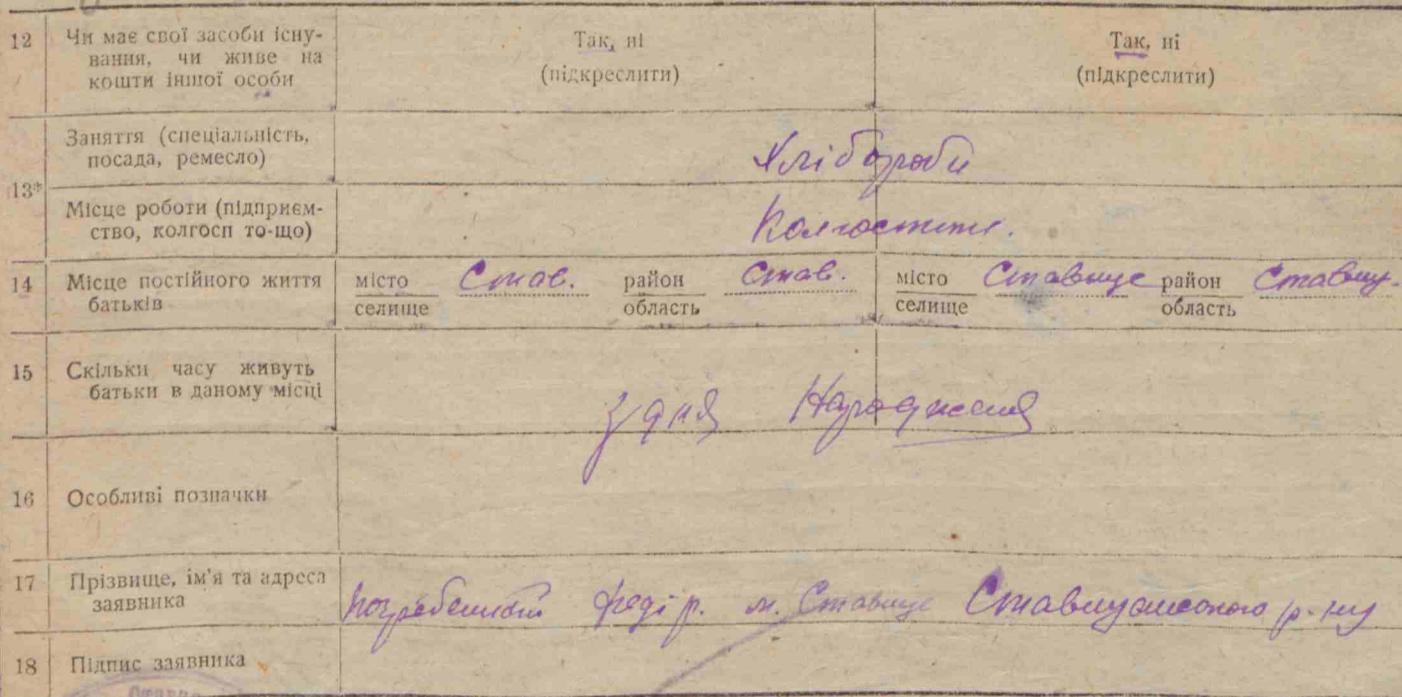 12 Чи має свої засоби існу-
вання, чи живе на
кошти іншої особи
Так, ні
(підкреслити)
Так, ні
(підкреслити)
13* Заняття (спеціальність,
посада, ремесло)
Хлібороби
Місце роботи (підприєм-
ство, колгосп то-що)
14 Місце постійного життя
батьків
місто Став. район Став.
селище область
місто Ставище район Ставищ.
селище область
15 Скільки часу живуть
батьки в даному місці
З дня Народження
16 Особливі позначки
17 Прізвище, ім'я та адреса
заявника
Федір. м. Ставище Ставищанського р-ну
18 Підпис заявника